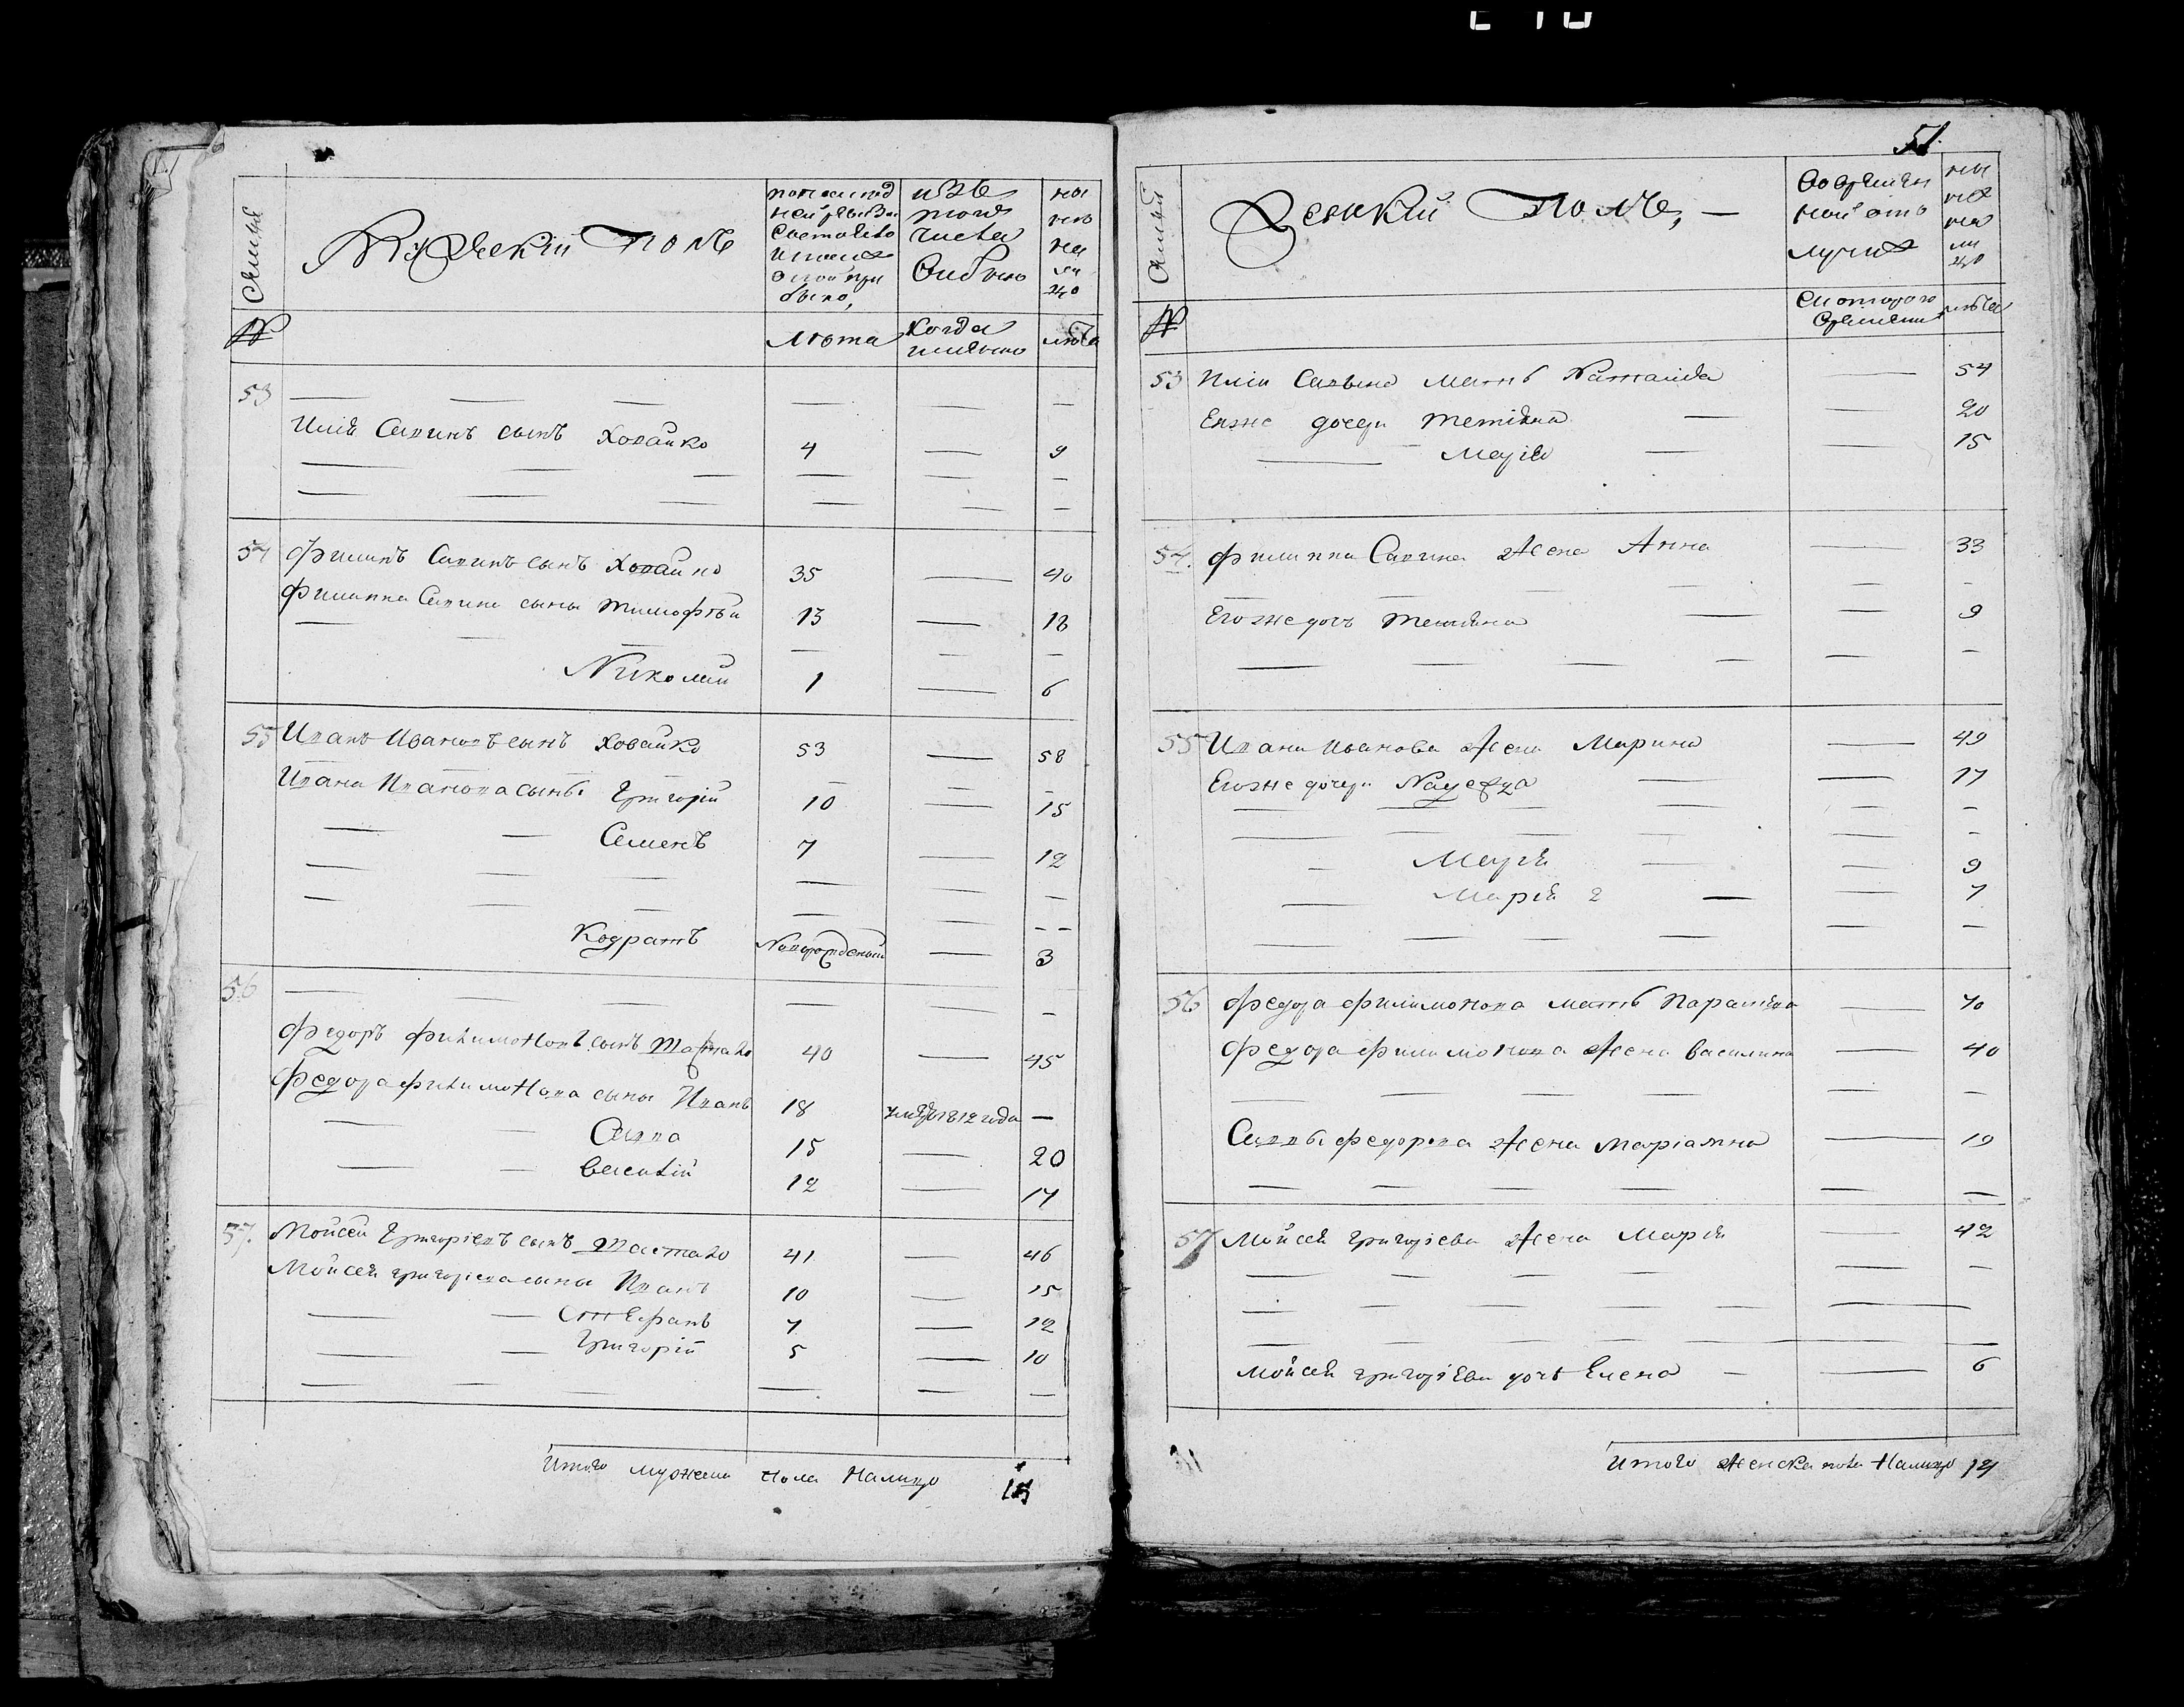 Семья
Мужескій полъ
по последней ревизіи состояло и после оной прибыло,
изъ того числа выбыло
ныне на лицо
№
Лѣта
Когда именно
лѣта
53
Илія Савинъ сынъ Ховайко 4 — 9
54 Филипъ Савинъ сынъ Ховайко 35 — 40
Филиппа Савина сыны Тимофѣй 13 — 18
Николай 1 — 6
55 Иванъ Ивановъ сынъ Ховайко 53 — 58
Ивана Иванова сыны Григорій 10 — 15
Семенъ 7 — 12
Кодратъ Новорожденый — 3
56
Федоръ Филимоновъ сынъ 40 — 45
Федора Филимонова сыны Иванъ 18 1812 года —
Савва 15 — 20
Василій 12 — 17
57. Мойсей Григоріевъ сынъ 41 — 46
Мойсея Григоріева сыны Иванъ 10 — 15
Стефанъ 7 — 12
Григорій 5 — 10
Итого мужеска пола налицо
51.
Семья
Женский полъ, —
во временной отлучке
ныне на лицо
№
с котораго времени
лѣта
53 Иліи Савына мать Наталия — 54
Егоже дочери Тетіяна — 20
Марія — 15
54. Филиппа Савина жена Анна — 33
Егоже дочь Тетіяна — 9
55 Ивана Иванова жена Марина — 49
Егоже дочери — 17
Марія — 9
Марія 2 — 7
56 Федора Филимонова мать — 70
Федора Филимонова жена Василина — 40
Саввы Федорова жена Маріамна — 19
57 Мойсея Григоріева жена Марія — 42
Мойсея Григоріева дочь Елена — 6
Итого женска пола налицо 14